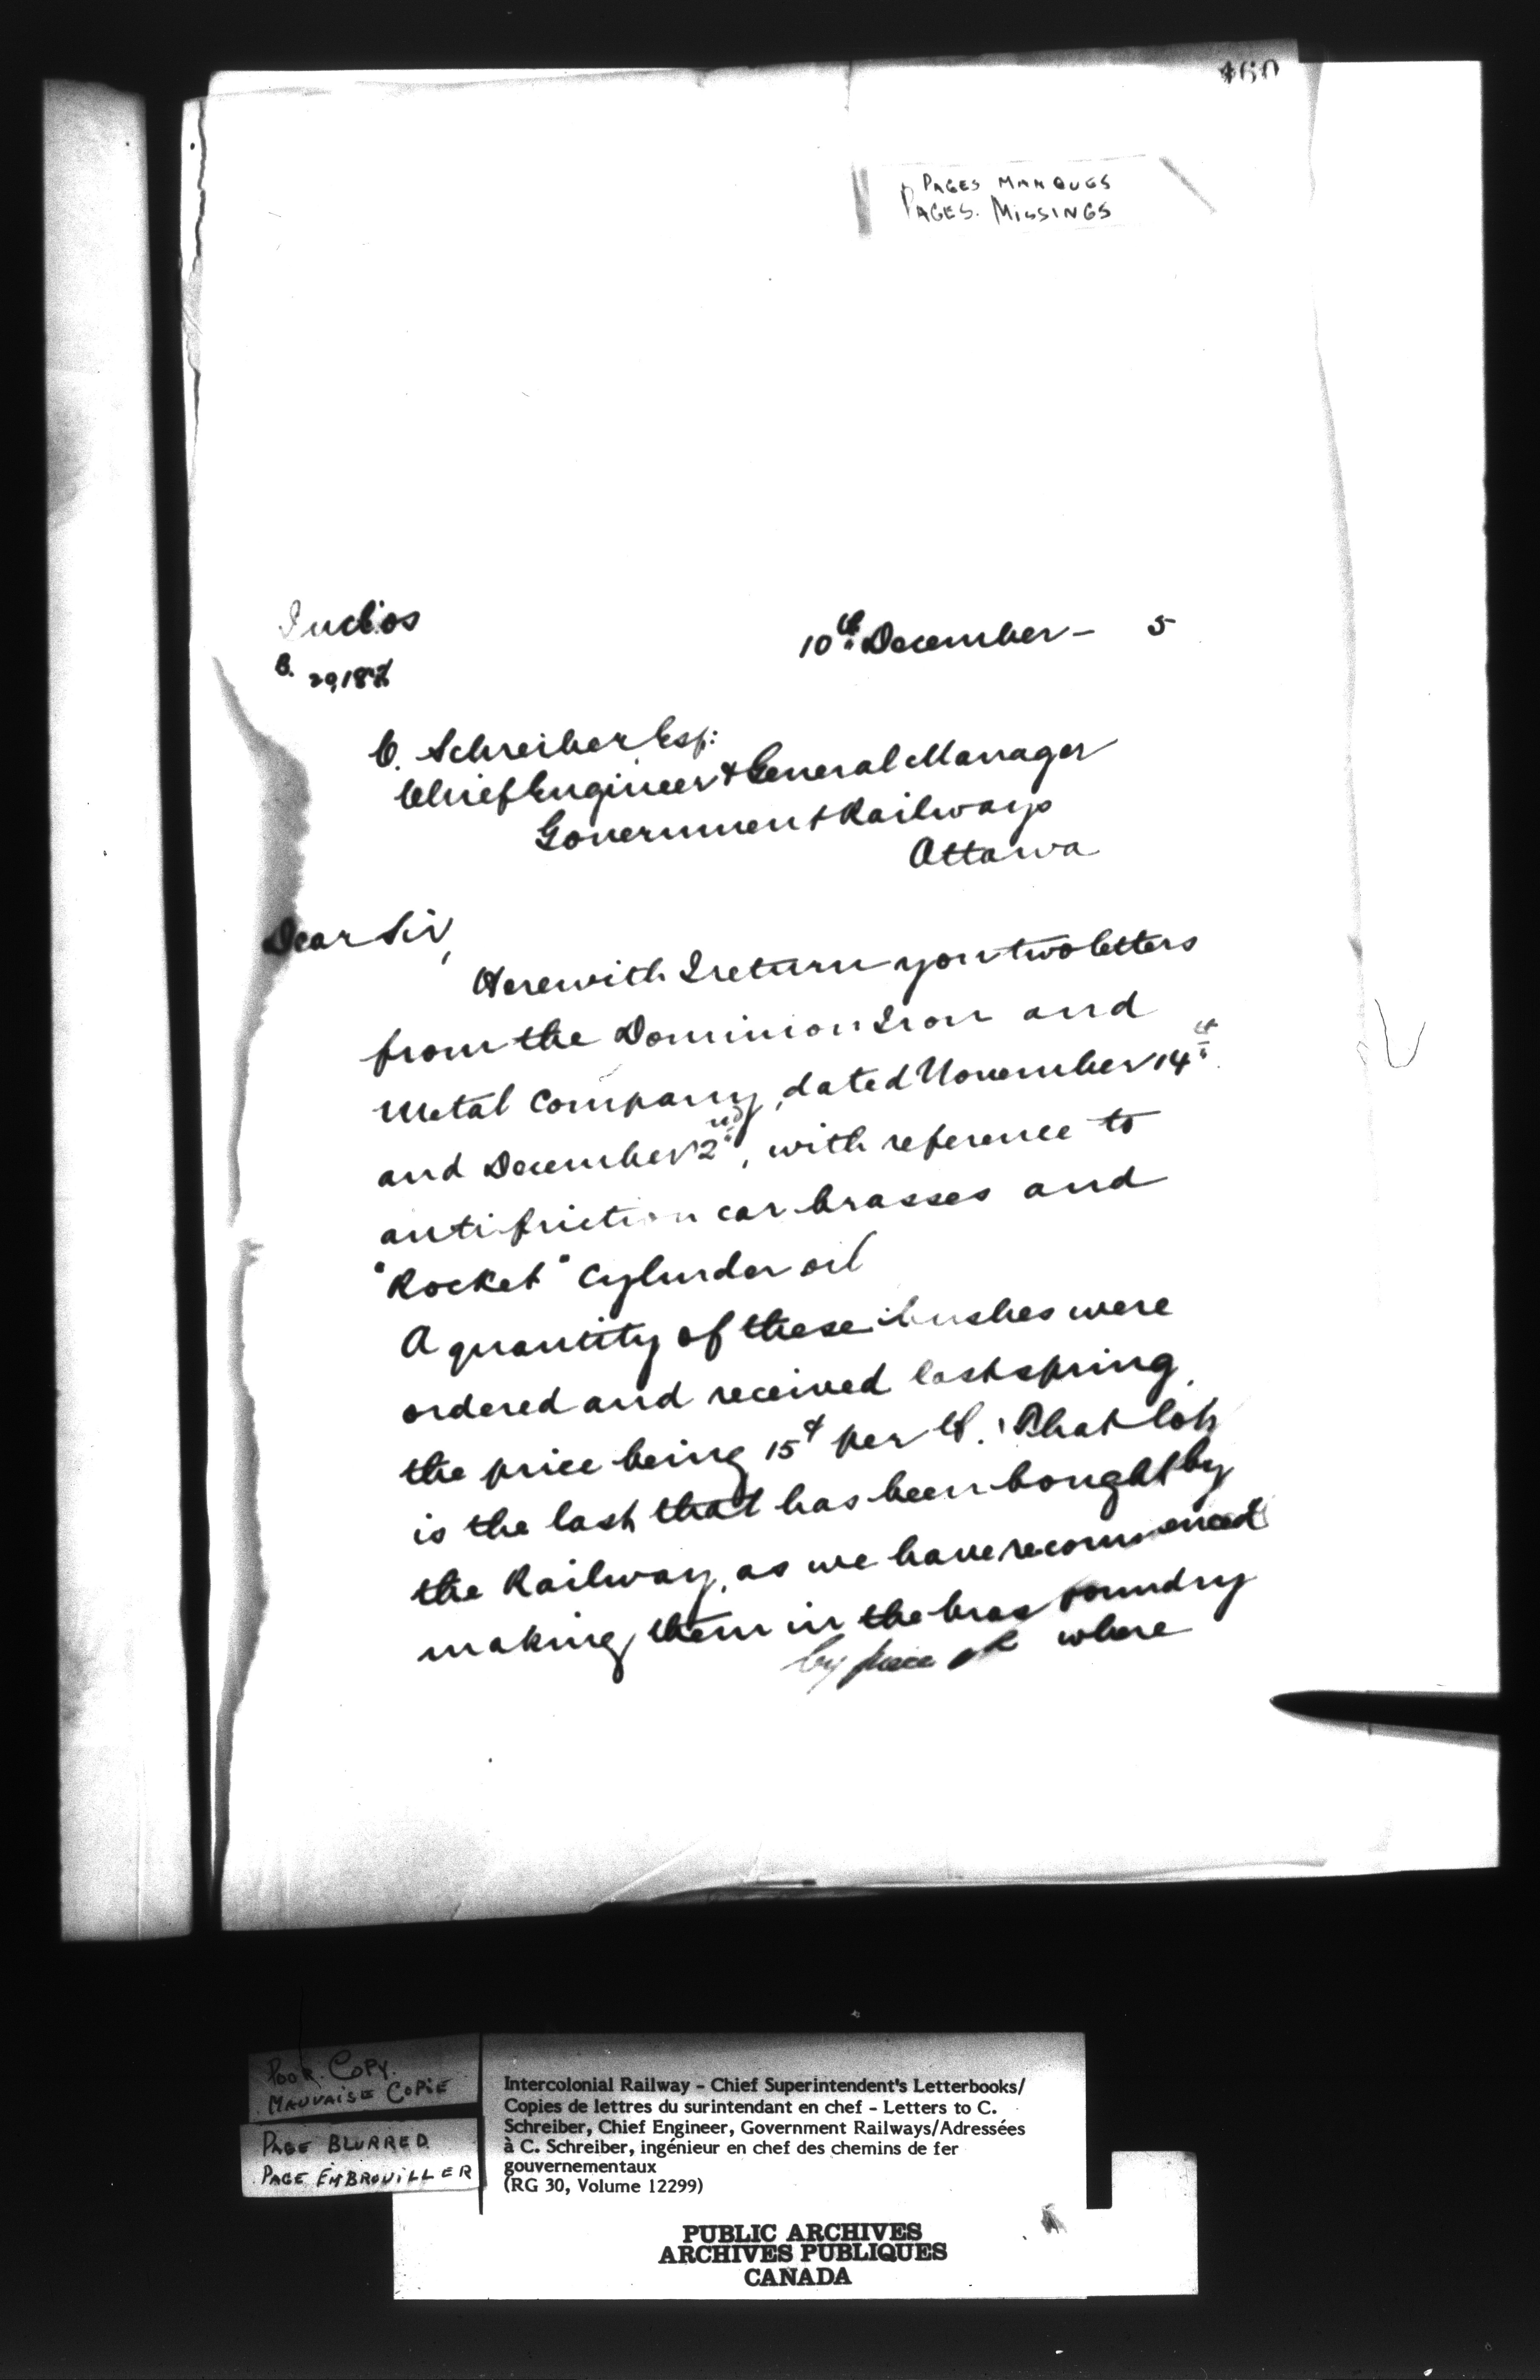 460
PAGES MANQUES
PAGES. MISSINGS
Inclos
10th December - 5
B. 29,187
C. Schreiber Esq:
Chief Engineer & General Manager
Government Railways
Ottawa
Dear Sir,
Herewith I return you two letters
from the Dominion Iron and
Metal Company, dated November 14th
and December 2nd, with reference to
antifriction car brasses and
"Rocket" Cylinder oil
A quantity of these bushes were
ordered and received last spring,
the price being 15¢ per lb. That lot
is the last that has been bought by
the Railway, as we have recommenced
making them in the brass foundry
by piece where
POOR. COPY.
MAUVAISE COPIE
PAGE BLURRED
PAGE EMBROUILLER
Intercolonial Railway - Chief Superintendent's Letterbooks/
Copies de lettres du surintendant en chef - Letters to C.
Schreiber, Chief Engineer, Government Railways/Adressées
à C. Schreiber, ingénieur en chef des chemins de fer
gouvernementaux
(RG 30, Volume 12299)
PUBLIC ARCHIVES
ARCHIVES PUBLIQUES
CANADA